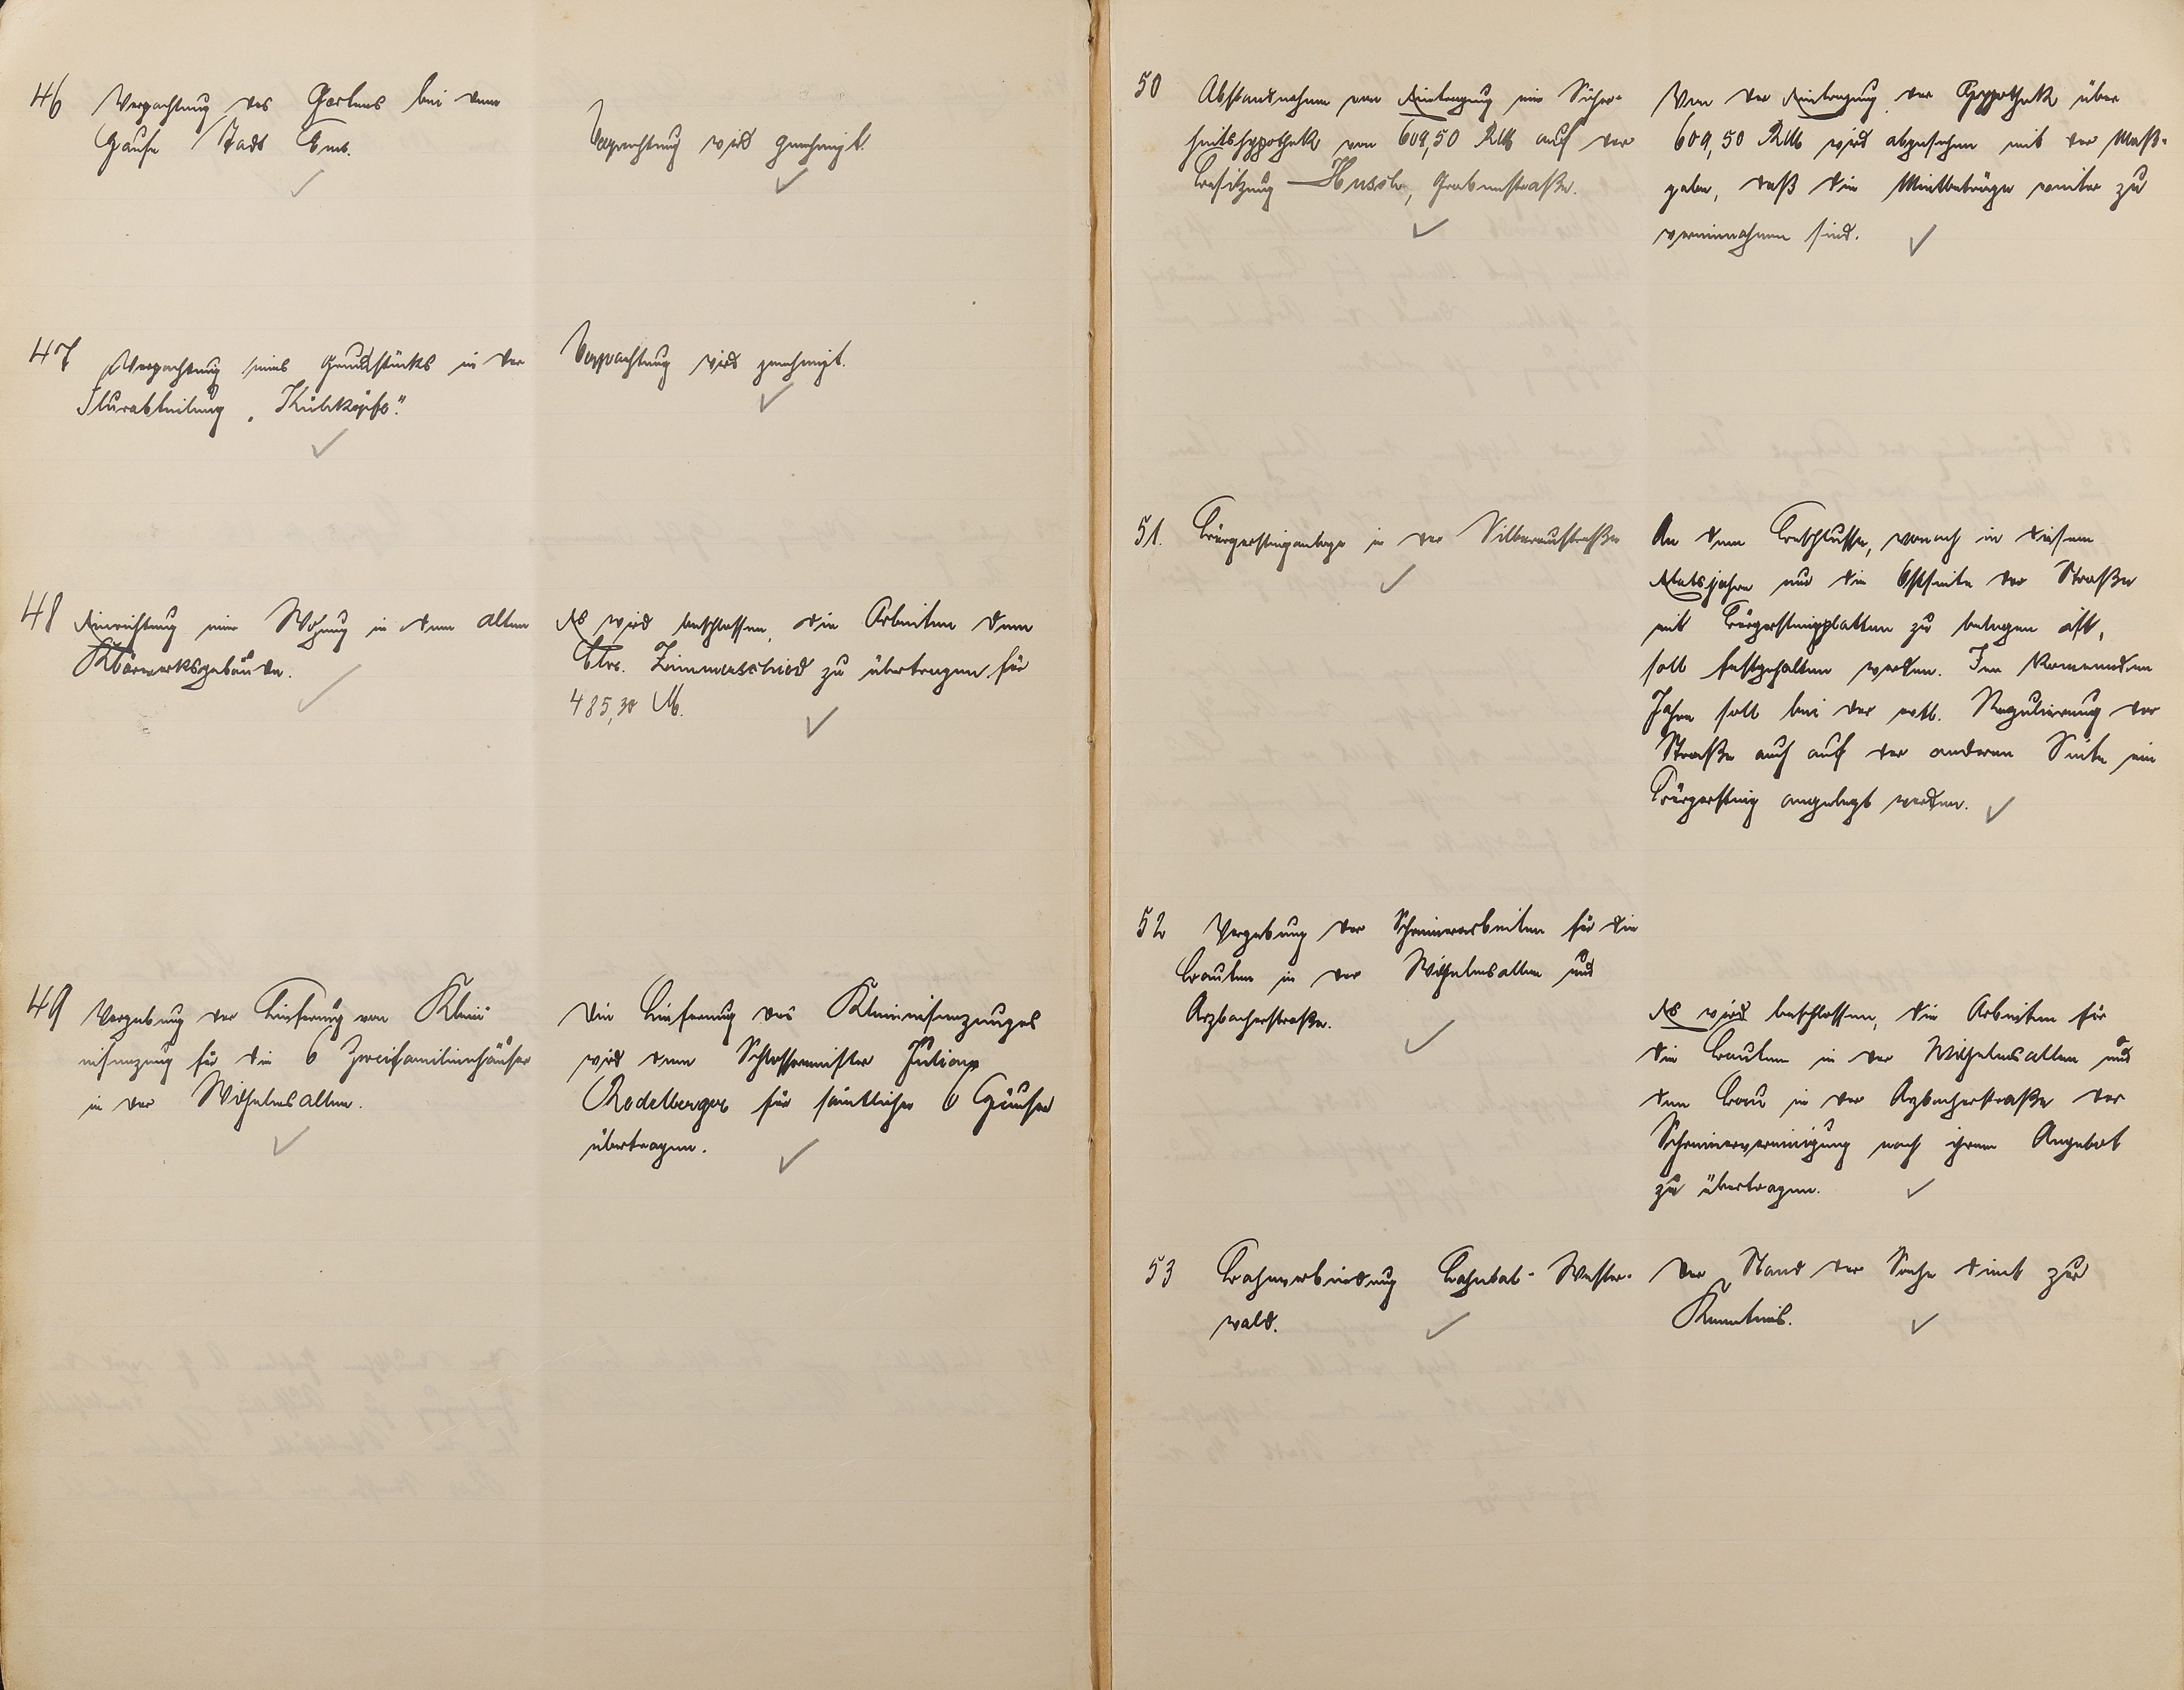 46 Verpachtung des Gartens bei dem
Hause Stadt Ems.
Verpachtung wird genehmigt.
47 Verpachtung eines Grundstücks in der
Flurabteilung „Kühköpfe".
Verpachtung wird genehmigt.
48 Einrichtung einer Wohnung in dem alten
Klärwerksgebäude.
Es wird beschlossen, die Arbeiten dem
Zimmerschied zu übertragen für
485,30 M.
49 Vergebung der Lieferung von Klein-
eisenzeug für die 6 Zweifamilienhäuser
in der Wilhelmsallee.
Die Lieferung des Kleineisenzeuges
wird dem Schlossermeister
Rodelberger für sämtliche 6 Häuser
übertragen.
50 Abstandnahme von Eintragung einer Sicher-
heitshypothek von 609,50 RM auf der
Besitzung Husch, Grabenstraße.
Von der Eintragung der Hypothek über
609,50 RM wird abgesehen mit der Maß-
gabe, daß die Mietbeträge weiter zu
vereinnahmen sind.
51. Bürgersteiganlage in der Silberaustraße
An dem Beschlusse, wonach in diesem
Etatsjahre nur die Ostseite der Straße
mit Bürgersteigplatten zu belegen ist,
soll festgehalten werden. Im kommenden
Jahre soll bei der evtl. Regulierung der
Straße auch auf der anderen Seite ein
Bürgersteig angelegt werden.
52 Vergebung der Schreinerarbeiten für die
Bauten in der Wilhelmsallee und
Arzbacherstraße.
Es wird beschlossen, die Arbeiten für
die Bauten in der Wilhelmsallee und
dem Bau in der Arzbacherstraße der
Schreinervereinigung nach ihrem Angebot
zu übertragen.
53 Bahnverbindung Lahntal-Wester-
wald.
Der Stand der Sache dient zur
Kenntnis.